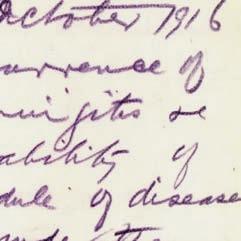 October 1916
urrence of
ningitis &
ability of
dule of disease